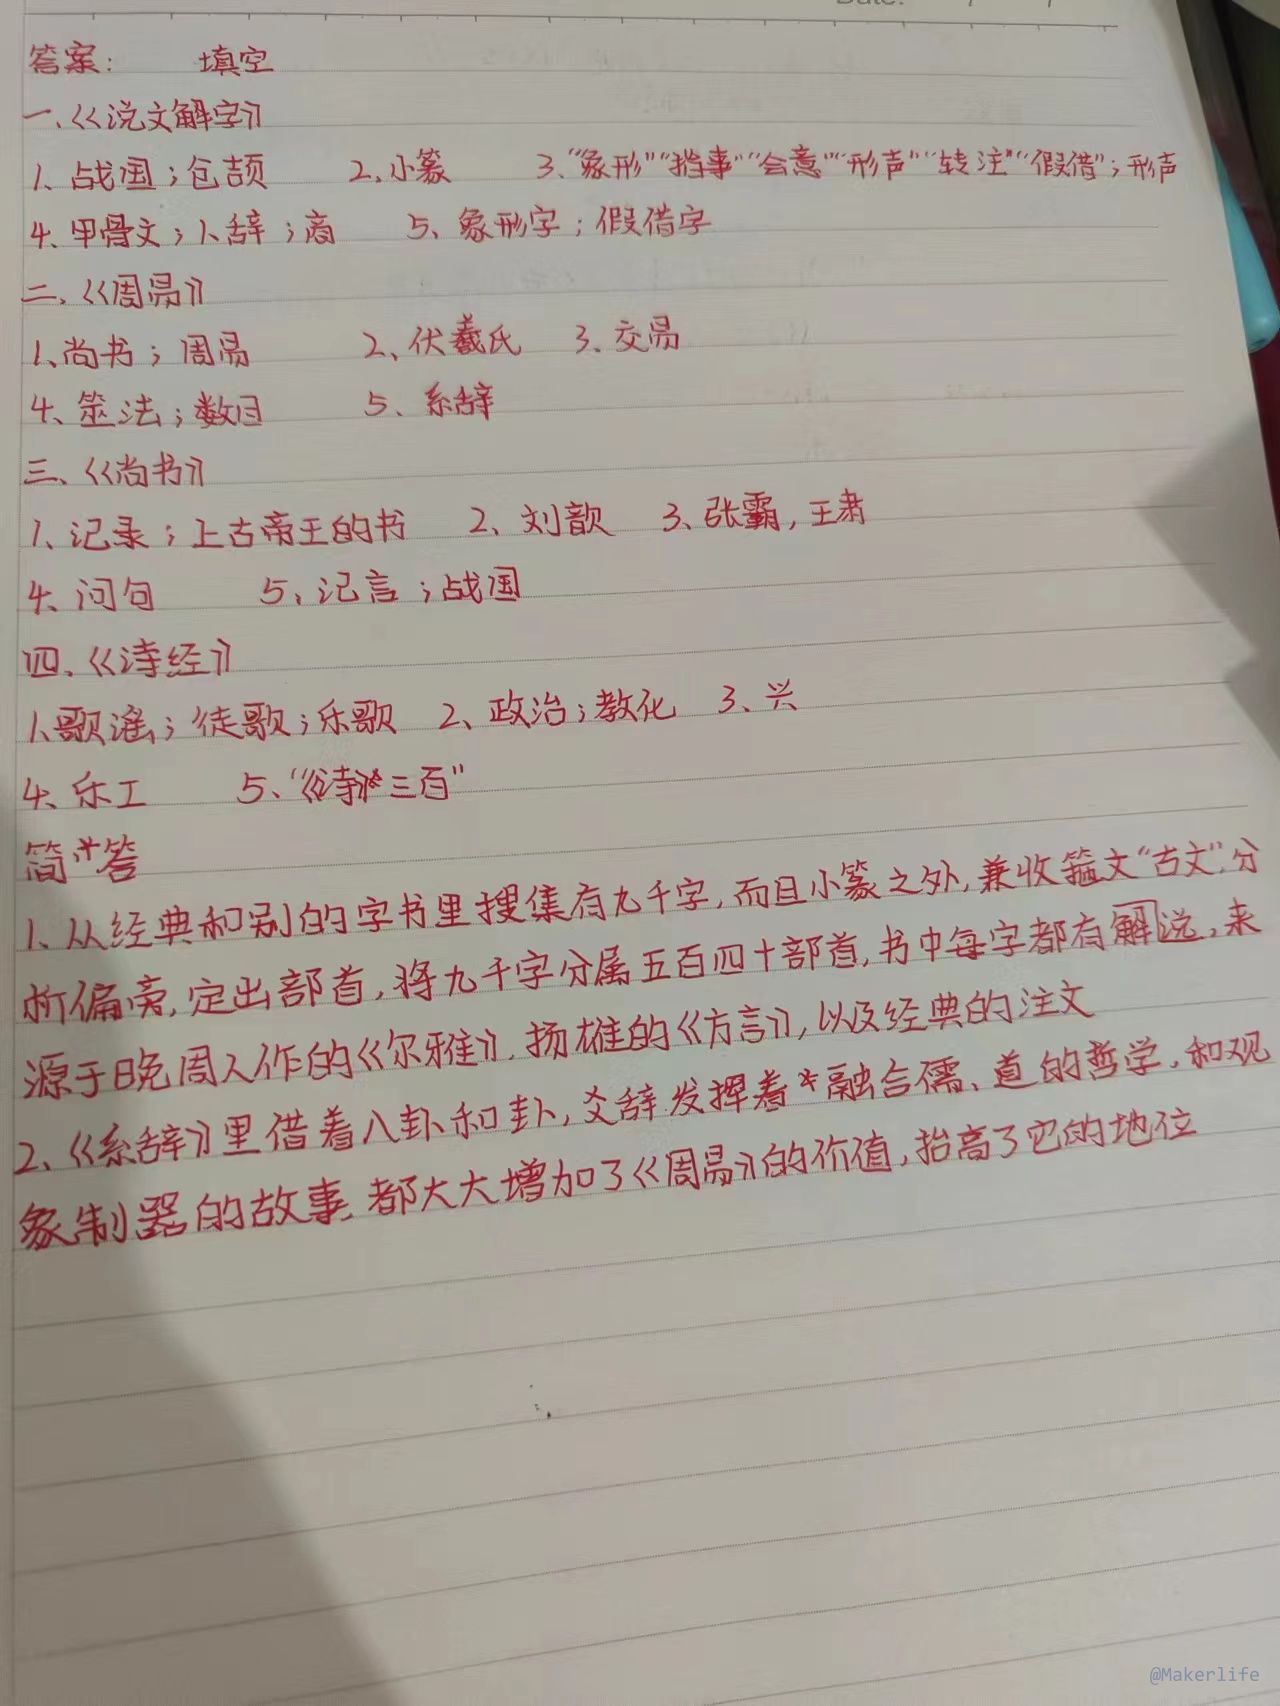 Date: / /
答案： 填空
一、《说文解字》
1、战国；仓颉 2、小篆 3、“象形”“指事”“会意”“形声”“转注”“假借”；形声
4、甲骨文；卜辞；商 5、象形字；假借字
二、《周易》
1、尚书；周易 2、伏羲氏 3、交易
4、筮法；数目 5、系辞
三、《尚书》
1、记录；上古帝王的书 2、刘歆 3、张霸，王肃
4、问句 5、记言；战国
四、《诗经》
1、歌谣；徒歌；乐歌 2、政治；教化 3、兴
4、乐工 5、“《诗》三百”
简答
1、从经典和别的字书里搜集有九千字，而且小篆之外，兼收籀文“古文”，分
析偏旁，定出部首，将九千字分属五百四十部首，书中每字都有解说，来
源于晚周人作的《尔雅》，扬雄的《方言》，以及经典的注文
2、《系辞》里借着八卦和卦，爻辞发挥着融合儒、道的哲学，和观
象制器的故事，都大大增加了《周易》的价值，抬高了它的地位
@Makerlife